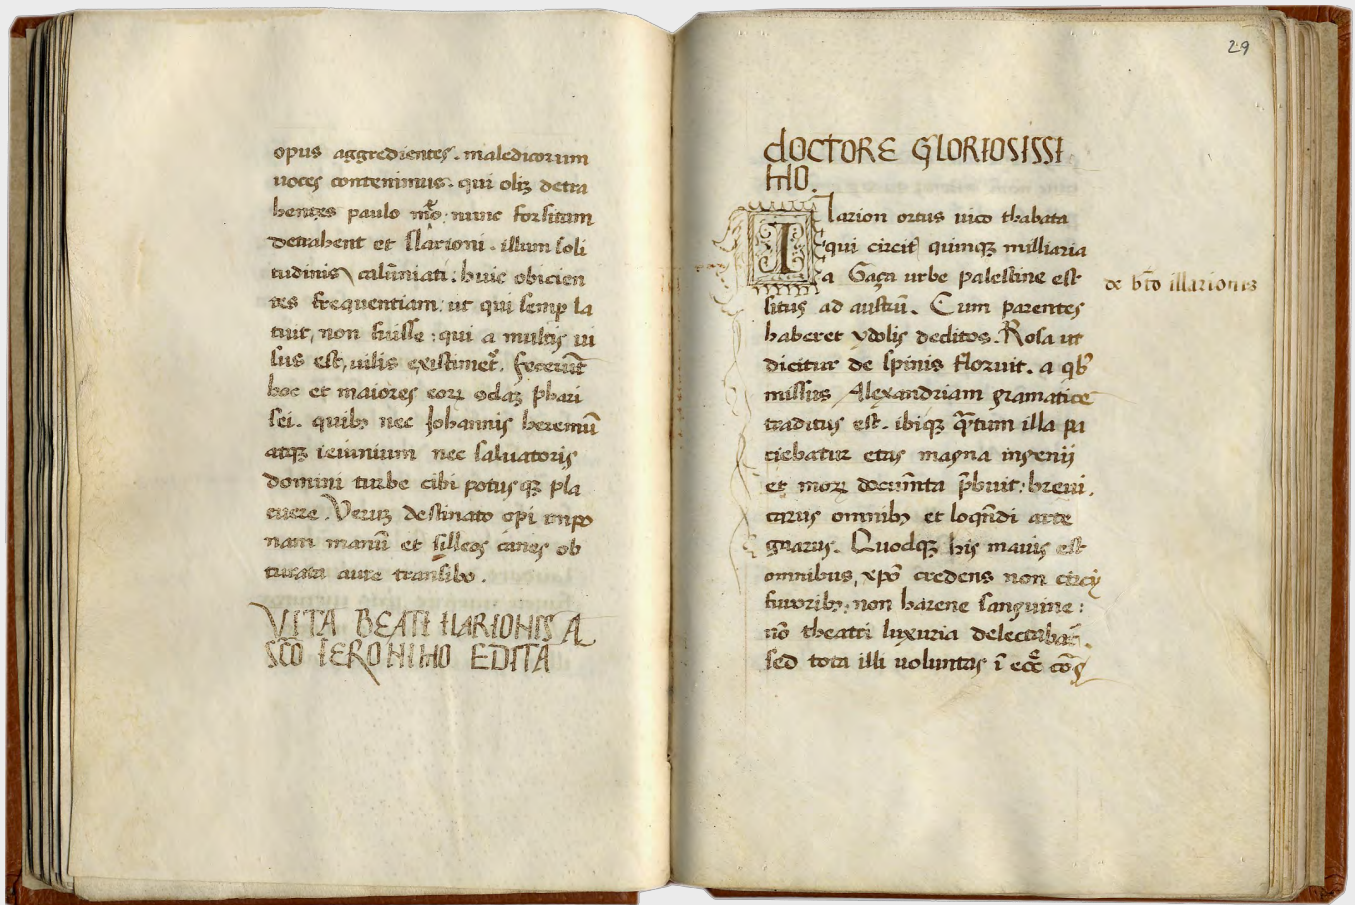 opus aggredientes. maledicorum
uoces contenimus. qui oliʒ detra
hentes paulo mō: nunc forsitam
detrahent et Ilarioni. illum soli
tudinis calūniati: huic obicien
tes frequentiam: ut qui semꝑ la
tuit, non fuisse: qui a multis ui
sus est, uilis existimet᷑. fecerūt
hoc et maiores eoꝝ odaʒ phari
sei. quibꝫ nec Johannis heremū
atqꝫ ieiunium nec saluatoris
domini turbe cibi potusqꝫ pla
cuere. Veruʒ destinato opi inpo
nam manū et silleos canes ob
turata aure transibo.
VITA BEATI ILARIONIS A
SCO IERONIMO EDITA
29
DOCTORE GLORIOSISSI
MO.
Ilarion ortus uico thabata
qui circit᷑ quinqꝫ milliaria
a Gaça urbe palestine est
situs ad austrū. Cum parentes
haberet ydolis deditos. Rosa ut
dicitur de spinis floruit. a qb᷒
missus Alexandriam gramatice
traditus est. ibiqꝫ q̄tum illa pa
ciebatur etas magna ingenii
et moꝝ docum̄ta p̄buit: breui.
carus omnibꝫ et loqn̄di arte
gnarus. Quodqꝫ his maius est
omnibus, xp̄o credens non circy
furoribꝫ: non harene sanguine:
nō theatri luxuria delectabat᷑.
sed tota illi uoluntas ī ecc̄e
de b̄to illarionis